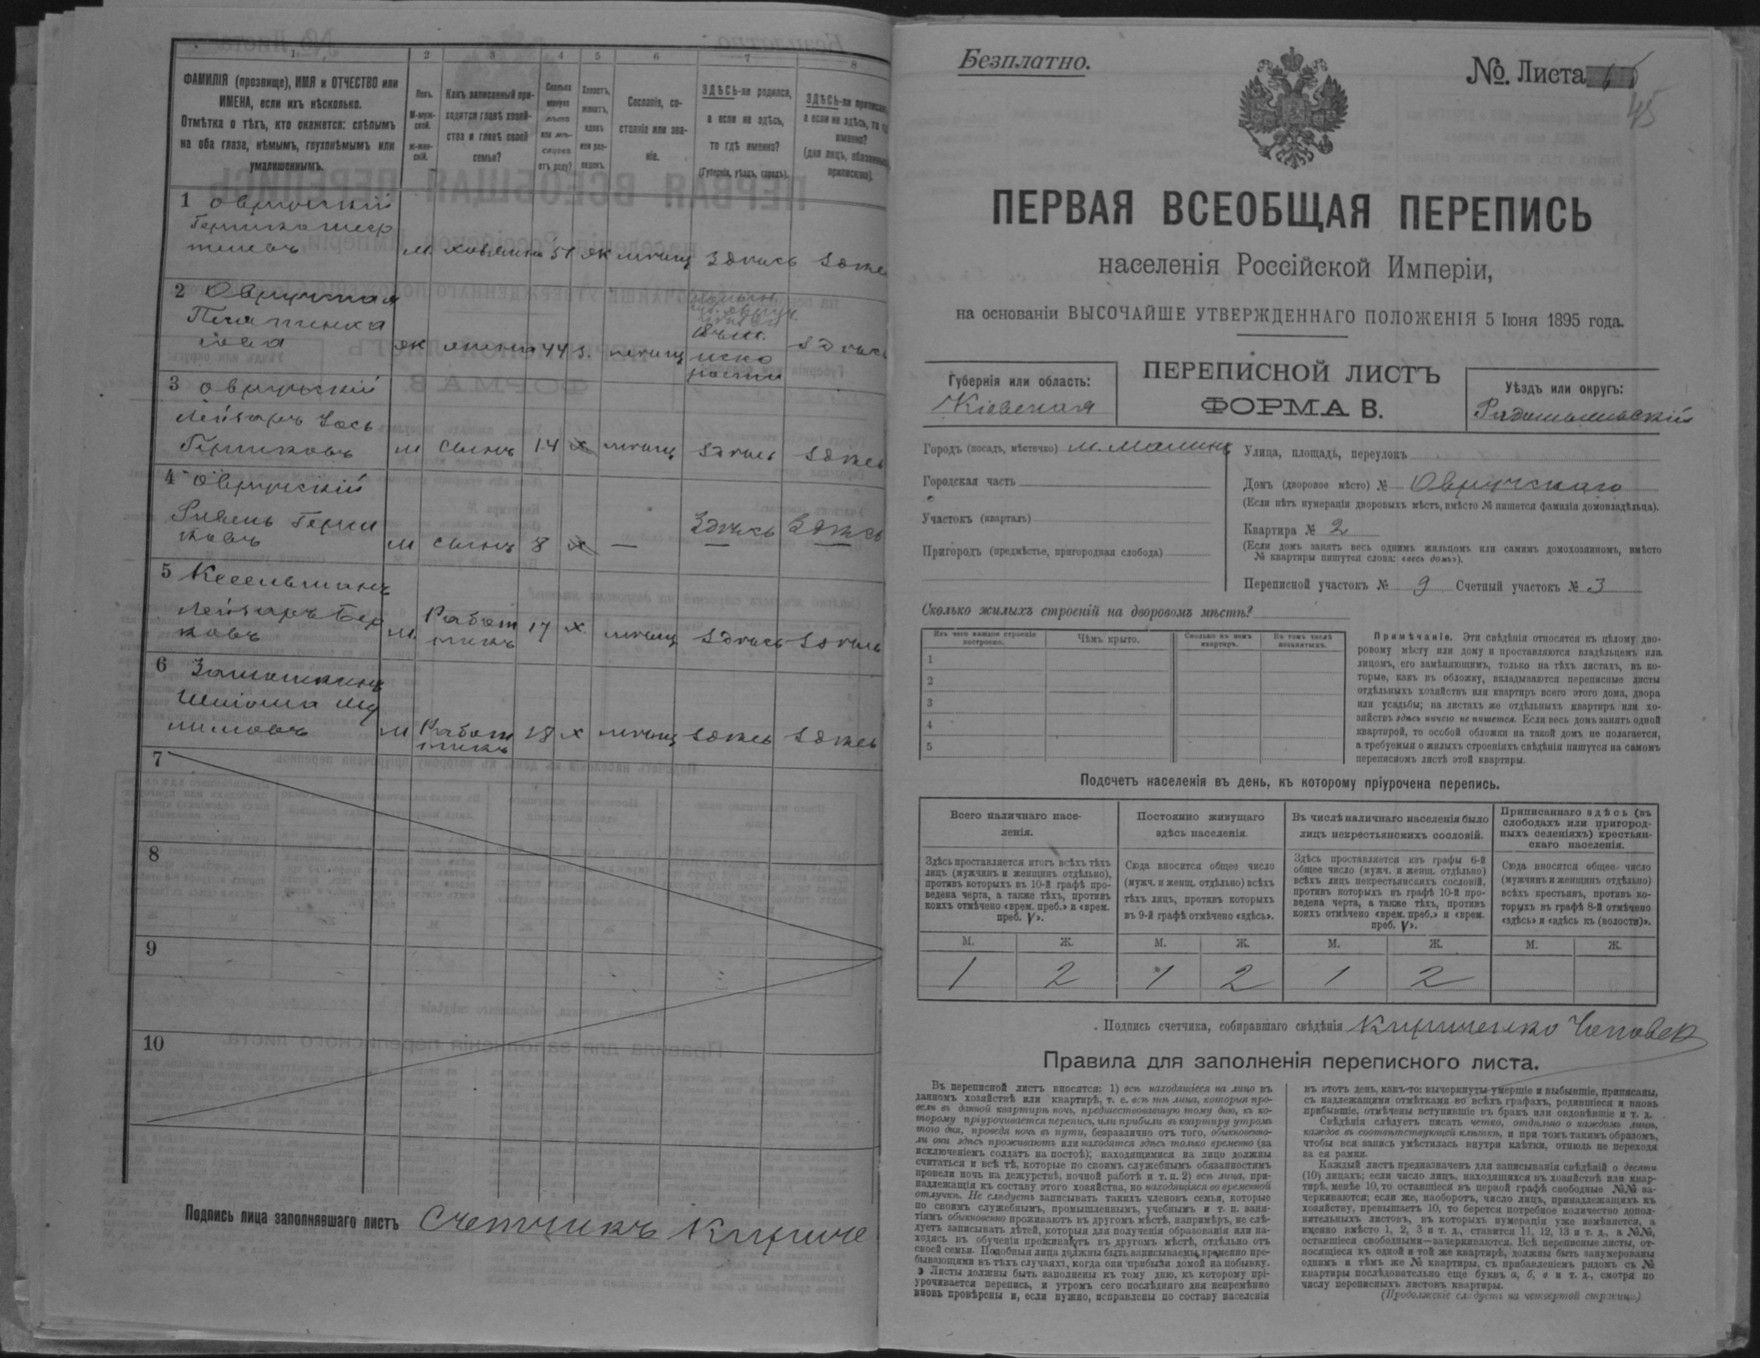 1 2 3 4 5 6 7 8
ФАМИЛІЯ (прозвище), ИМЯ и ОТЧЕСТВО или
ИМЕНА, если ихъ нѣсколько.
Отмѣтка о тѣхъ, кто окажется: слѣпымъ
на оба глаза, нѣмымъ, глухонѣмымъ или
умалишеннымъ.
Полъ.
Какъ записанный при-
ходится главѣ хозяй-
ства и главѣ своей
семьи?
Сословіе, со-
стояніе или зва-
ніе.
ЗДѢСЬ-ли родился,
а если не здѣсь,
то гдѣ именно?
(Губернія, уѣздъ, городъ).
1 Овруческій
м. хозяинъ 51 мѣщ Здѣсь Здѣсь
2 Овручская
ж жена 44 з. мѣщ Здѣсь
3 Овруческій
Лейзаръ
Гершковъ м сынъ 14 х мѣщ Здѣсь Здѣсь
4 Овруческій
м сынъ 8 х — Здѣсь Здѣсь
5 Кесельманъ
Лейзаръ Бер
ковъ м. Работ
никъ 17 х. мѣщ Здѣсь Здѣсь
6
м Работ
никъ 18 х мѣщ Здѣсь Здѣсь
7
8
9
10
Подпись лица заполнявшаго листъ Счетчикъ Кириче
Безплатно.
№ Листа
45
ПЕРВАЯ ВСЕОБЩАЯ ПЕРЕПИСЬ
населенія Россійской Имперіи,
на основаніи ВЫСОЧАЙШЕ УТВЕРЖДЕННАГО ПОЛОЖЕНІЯ 5 Іюня 1895 года.
ПЕРЕПИСНОЙ ЛИСТЪ
ФОРМА В.
Губернія или область:
Кіевская
Уѣздъ или округъ:
Радомысльскій
Городъ (посадъ, мѣстечко) м. Малинъ
Городская часть
Участокъ (кварталъ)
Пригородъ (предмѣстье, пригородная слобода)
Улица, площадь, переулокъ
Домъ (дворовое мѣсто) № Овручскаго
(Если нѣтъ нумераціи дворовыхъ мѣстъ, вмѣсто № пишется фамилія домовладѣльца).
Квартира № 2
(Если домъ занятъ весь однимъ жильцомъ или самимъ домохозяиномъ, вмѣсто
№ квартиры пишутся слова: «весь домъ»).
Переписной участокъ № 9 Счетный участокъ № 3
Сколько жилыхъ строеній на дворовомъ мѣстѣ?
Изъ чего каждое строеніе
построено.
Чѣмъ крыто.
Сколько въ немъ
квартиръ.
Въ томъ числѣ
незанятыхъ.
1
2
3
4
5
Примѣчаніе. Эти свѣдѣнія относятся къ цѣлому дво-
ровому мѣсту или дому и проставляются владѣльцемъ или
лицомъ, его замѣняющимъ, только на тѣхъ листахъ, въ ко-
торые, какъ въ обложку, вкладываются переписные листы
отдѣльныхъ хозяйствъ или квартиръ всего этого дома, двора
или усадьбы; на листахъ же отдѣльныхъ квартиръ или хо-
зяйствъ здѣсь ничего не пишется. Если весь домъ занятъ одной
квартирой, то особой обложки на такой домъ не полагается,
а требуемыя о жилыхъ строеніяхъ свѣдѣнія пишутся на самомъ
переписномъ листѣ этой квартиры.
Подсчетъ населенія въ день, къ которому пріурочена перепись.
Всего наличнаго насе-
ленія.
Здѣсь проставляется итогъ всѣхъ тѣхъ
лицъ (мужчинъ и женщинъ отдѣльно),
противъ которыхъ въ 10-й графѣ про-
ведена черта, а также тѣхъ, противъ
коихъ отмѣчено «врем. преб.» и «врем.
преб. V».
Постоянно живущаго
здѣсь населенія.
Сюда вносится общее число
(мужч. и женщ. отдѣльно) всѣхъ
тѣхъ лицъ, противъ которыхъ
въ 9-й графѣ отмѣчено «здѣсь».
Въ числѣ наличнаго населенія было
лицъ некрестьянскихъ сословій.
Здѣсь проставляется изъ графы 6-й
общее число (мужч. и женщ. отдѣльно)
всѣхъ лицъ некрестьянскихъ сословій,
противъ которыхъ въ графѣ 10-й про-
ведена черта, а также тѣхъ, противъ
коихъ отмѣчено «врем. преб.» и «врем.
преб. V».
Приписаннаго здѣсь (въ
слободахъ или пригород-
ныхъ селеніяхъ) крестьян-
скаго населенія.
Сюда вносится общее число
(мужчинъ и женщинъ отдѣльно)
всѣхъ крестьянъ, противъ ко-
торыхъ въ графѣ 8-й отмѣчено
«здѣсь» и «здѣсь къ (волости)».
М. Ж. М. Ж. М. Ж. М. Ж.
1 2 1 2 1 2
Подпись счетчика, собиравшаго свѣдѣнія Кириченко
Правила для заполненія переписного листа.
Въ переписной листъ вносятся: 1) всѣ находящіеся на лицо въ
данномъ хозяйствѣ или квартирѣ, т. е. всѣ тѣ лица, которыя про-
вели въ данной квартирѣ ночь, предшествовавшую тому дню, къ ко-
торому пріурочивается перепись, или прибыли въ квартиру утромъ
того дня, проведя ночь въ пути, безразлично отъ того, обыкновенно-
ли они здѣсь проживаютъ или находятся здѣсь только временно (за
исключеніемъ солдатъ на постоѣ); находящимися на лицо должны
считаться и всѣ тѣ, которые по своимъ служебнымъ обязанностямъ
провели ночь на дежурствѣ, ночной работѣ и т. п. 2) всѣ лица, при-
надлежащія къ составу этого хозяйства, но находящіяся во временной
отлучкѣ. Не слѣдуетъ записывать такихъ членовъ семьи, которые
по своимъ служебнымъ, промышленнымъ, учебнымъ и т. п. заня-
тіямъ обыкновенно проживаютъ въ другомъ мѣстѣ, напримѣръ, не слѣ-
дуетъ записывать дѣтей, которыя для полученія образованія или на-
ходясь въ обученіи проживаютъ въ другомъ мѣстѣ, отдѣльно отъ
своей семьи. Подобныя лица должны быть записываемы временно пре-
бывающими въ тѣхъ случаяхъ, когда они прибыли домой на побывку.
Листы должны быть заполнены къ тому дню, къ которому прі-
урочивается перепись, и утромъ сего послѣдняго дня непремѣнно
вновь провѣрены и, если нужно, исправлены по составу населенія
въ этотъ день, какъ-то: вычеркнуты умершіе и выбывшіе, приписаны,
съ надлежащими отмѣтками во всѣхъ графахъ, родившіеся и вновь
прибывшіе, отмѣчены вступившіе въ бракъ или овдовѣвшіе и т. д.
Свѣдѣнія слѣдуетъ писать четко, отдѣльно о каждомъ лицѣ,
каждое въ соотвѣтствующей клѣткѣ, и при томъ такимъ образомъ,
чтобы вся запись умѣстилась внутри клѣтки, отнюдь не переходя
за ея рамки.
Каждый листъ предназначенъ для записыванія свѣдѣній о десяти
(10) лицахъ; если число лицъ, находящихся въ хозяйствѣ или квар-
тирѣ, менѣе 10, то оставшіеся въ первой графѣ свободные №№ за-
черкиваются; если же, наоборотъ, число лицъ, принадлежащихъ къ
хозяйству, превышаетъ 10, то берется потребное количество допол-
нительныхъ листовъ, въ которыхъ нумерація уже измѣняется, а
именно вмѣсто 1, 2, 3 и т. д., ставится 11, 12, 13 и т. д., а №№,
оставшіеся свободными—зачеркиваются. Всѣ переписные листы, от-
носящіеся къ одной и той же квартирѣ, должны быть занумерованы
однимъ и тѣмъ же № квартиры, съ прибавленіемъ рядомъ съ №
квартиры послѣдовательно еще буквъ а, б, в и т. д., смотря по
числу переписныхъ листовъ квартиры.
(Продолженіе слѣдуетъ на четвертой страницѣ)